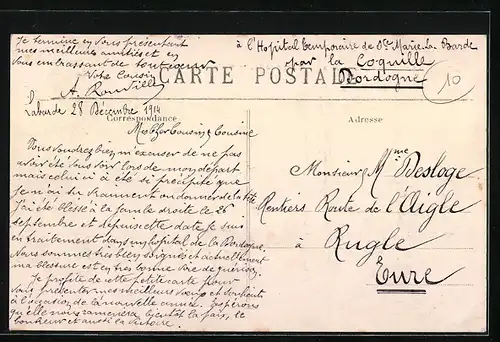 Je termine en vous présentant
mes meilleures amitiés et en
vous embrassant de tout cœur
Votre Cousin
A.
à l'Hopital temporaire de Ste Marie La Barde
par la Coquille
Dordogne
10
CARTE POSTALE
Labarde 28 Décembre 1914
Correspondance
Adresse
Mes Cher Cousin, Cousine
Vous voudrez bien m'excuser de ne pas
avoir été vous voir lors de mon départ
mais celui ci a été si précipité que
je n'ai su vraiment où donner de la tête
J'ai été blessé à la jambe droite le 26
septembre et depuis cette date je suis
en traitement dans un hopital de la Dordogne.
Nous sommes très bien soignés et actuellement
ma blessure est en très bonne voie de guérison.
Je profite de cette petite carte pour
vous présenter mes meilleurs vœux et souhaits
à l'occasion de la nouvelle année. Espérons
qu'elle nous ramènera bientôt la paix, le
bonheur et aussi la victoire.
Monsieur, Mme Desloge
Rentiers Route de l'Aigle
à Rugle
Eure